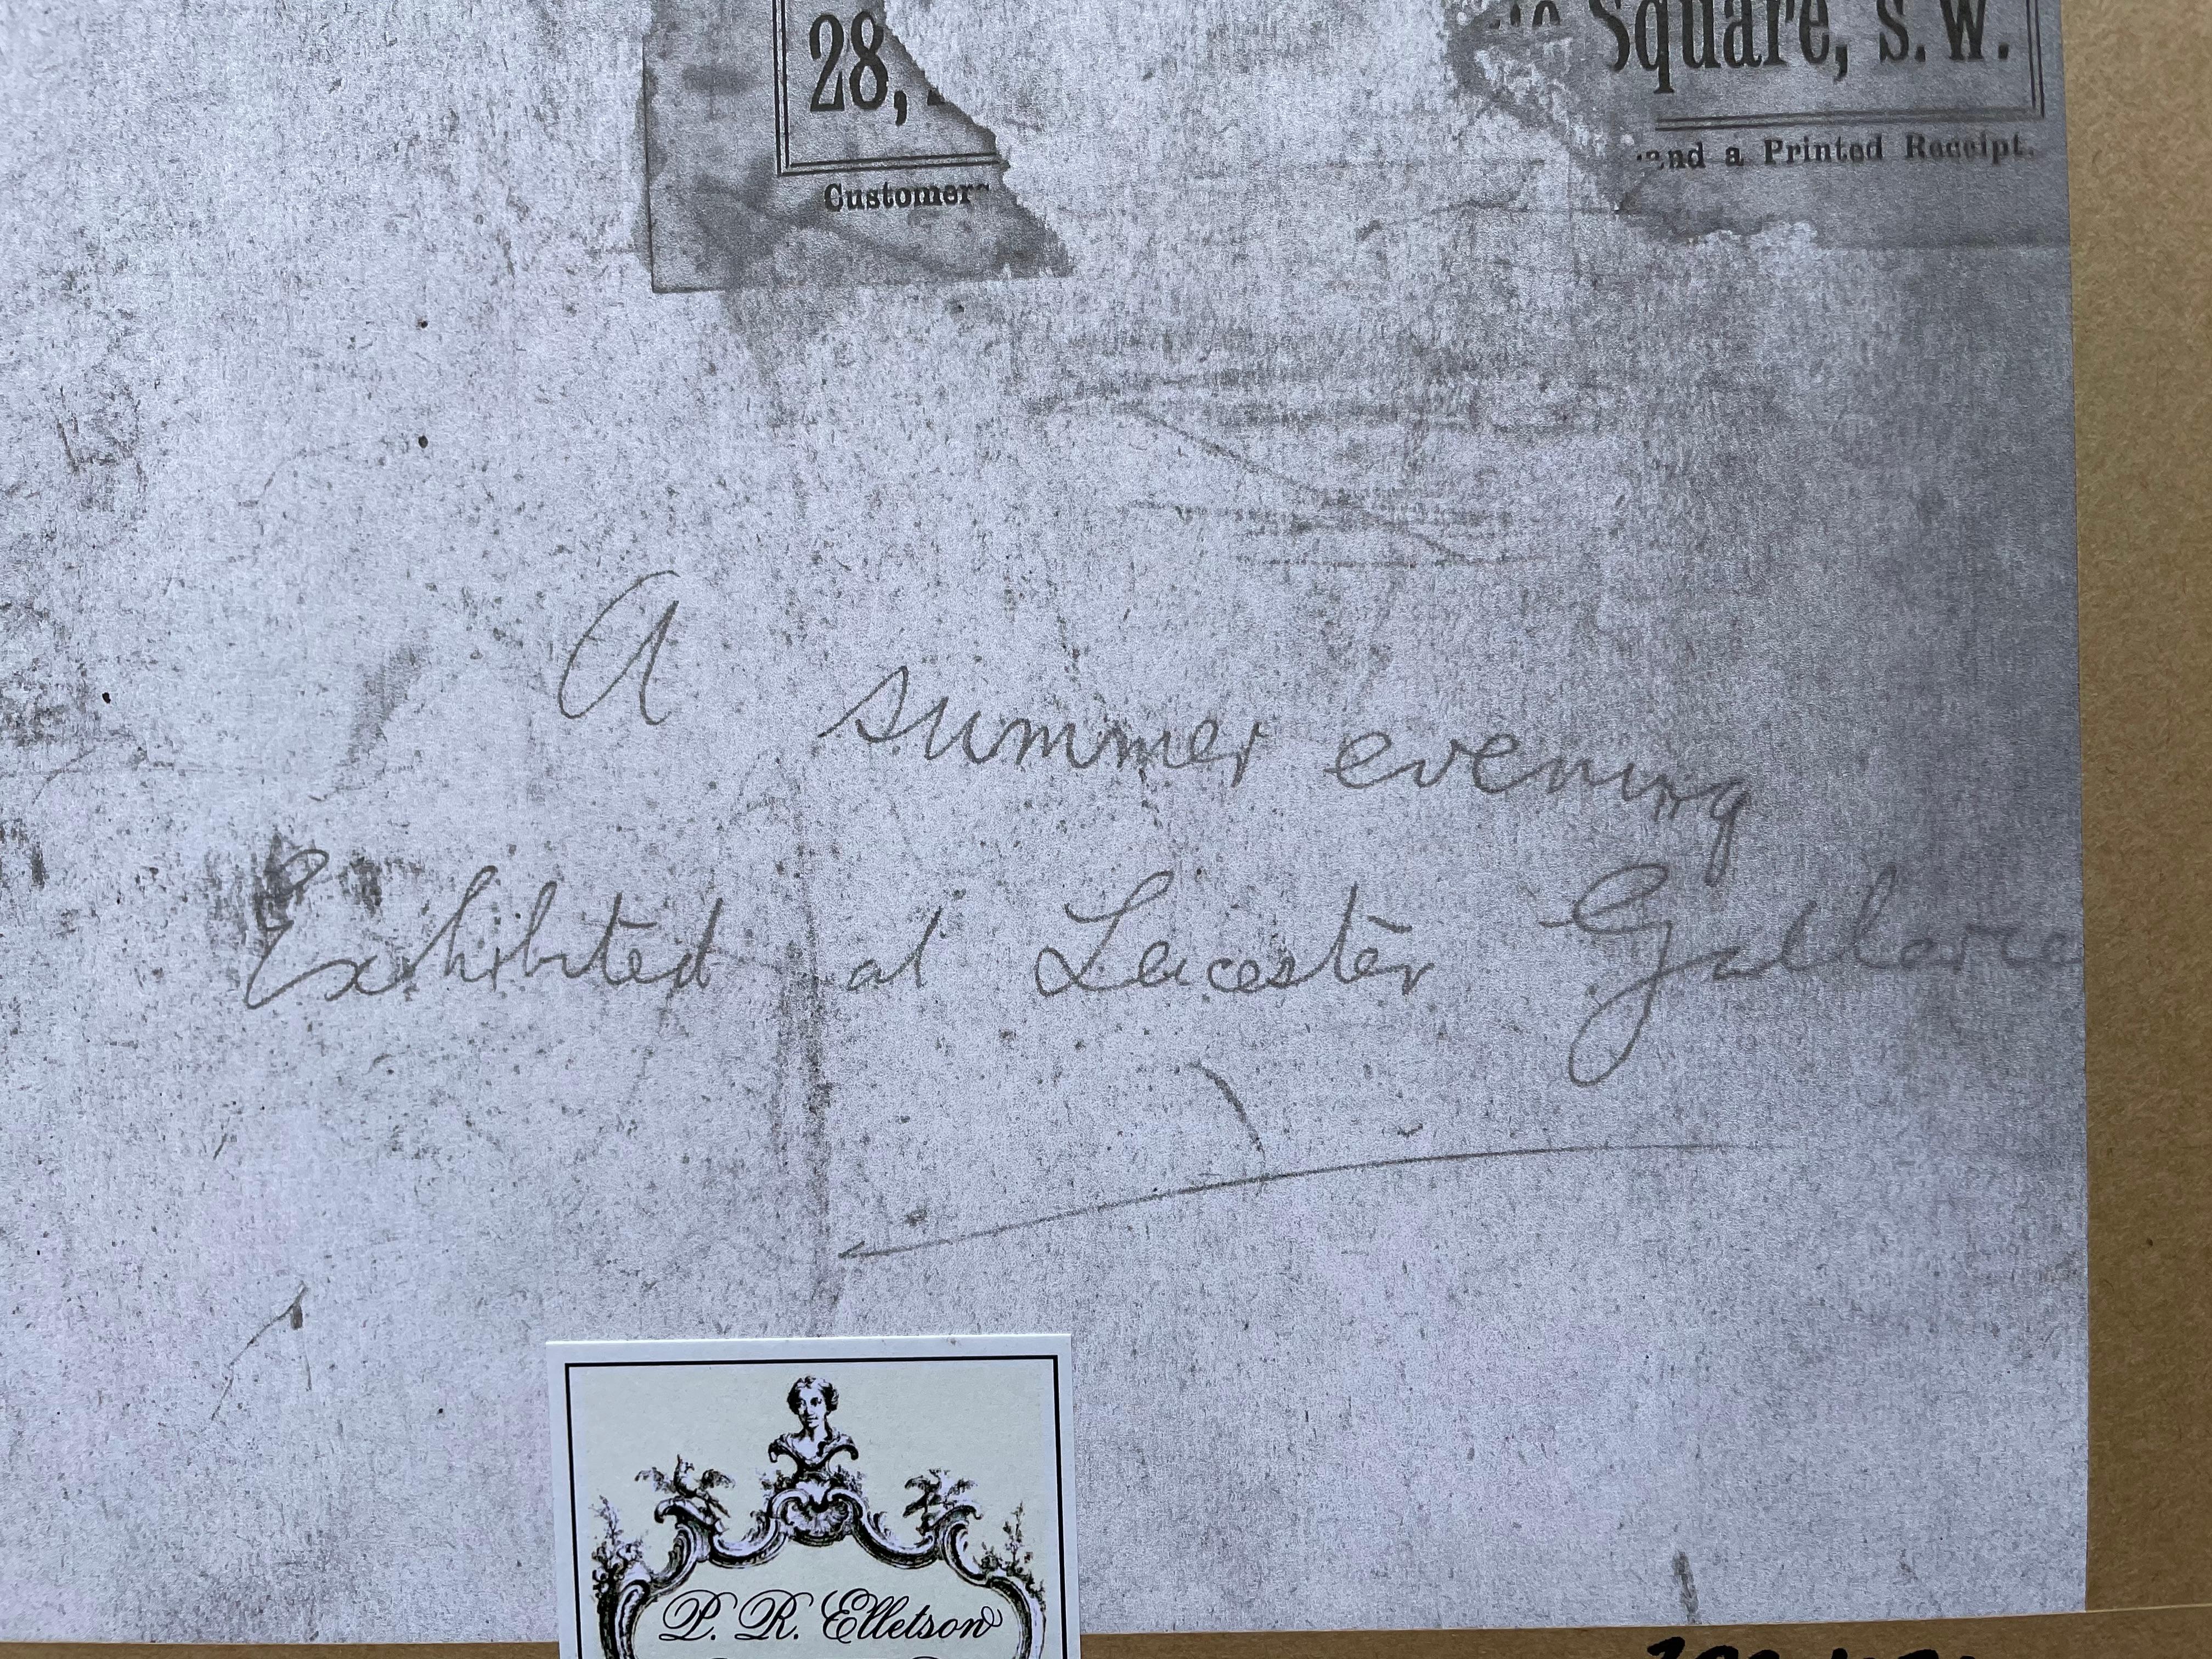 28,
Square, S.W.
and a Printed Receipt.
Customer
A summer evening
Exhibited at Leicester Gallerie
P. R. Elletson